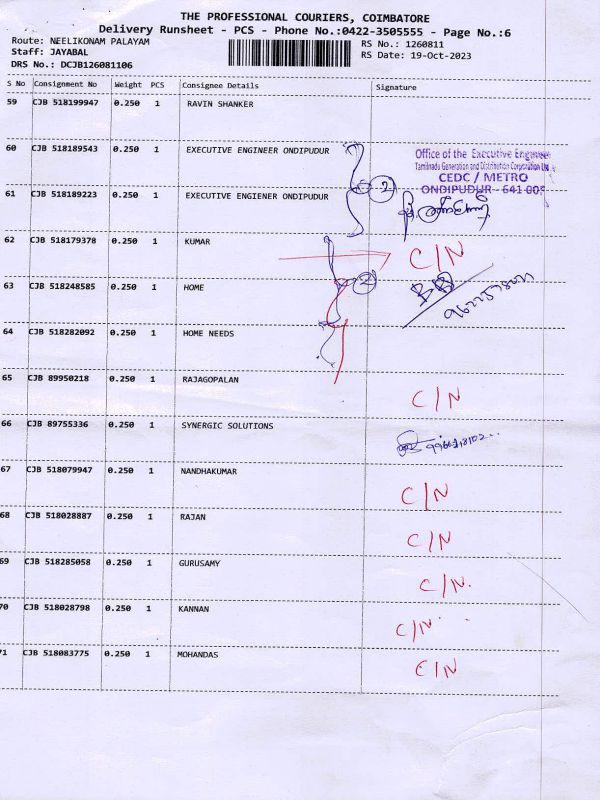 THE PROFESSIONAL COURIERS, COIMBATORE
Delivery Runsheet - PCS - Phone No.:0422-3505555 - Page No.:6
Route: NEELIKONAM PALAYAM
Staff: JAYABAL
DRS No.: DCJB126081106
RS No.: 1260811
RS Date: 19-Oct-2023
S No Consignment No Weight PCS Consignee Details Signature
59 CJB 518199947 0.250 1 RAVIN SHANKER
60 CJB 518189543 0.250 1 EXECUTIVE ENGINEER ONDIPUDUR
Office of the Executive Engineer
Tamilnadu Generation and Distribution Corporation Ltd
CEDC / METRO
ONDIPUDUR - 641 005
61 CJB 518189223 0.250 1 EXECUTIVE ENGIENER ONDIPUDUR 2
62 CJB 518179378 0.250 1 KUMAR C/N
63 CJB 518248585 0.250 1 HOME 2
64 CJB 518282092 0.250 1 HOME NEEDS
65 CJB 89950218 0.250 1 RAJAGOPALAN C/N
66 CJB 89755336 0.250 1 SYNERGIC SOLUTIONS
67 CJB 518079947 0.250 1 NANDHAKUMAR C/N
68 CJB 518028887 0.250 1 RAJAN C/N
69 CJB 518285058 0.250 1 GURUSAMY C/N.
70 CJB 518028798 0.250 1 KANNAN C/N
71 CJB 518083775 0.250 1 MOHANDAS C/N